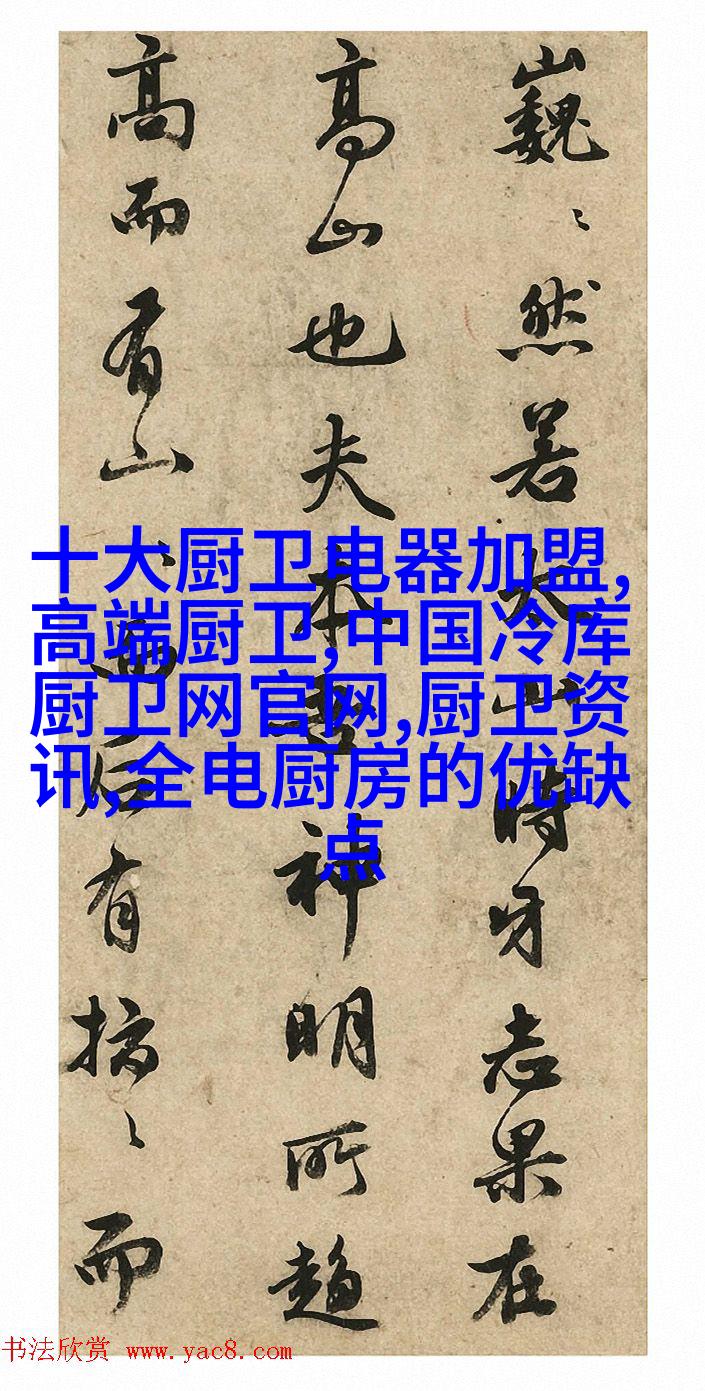 巍〻然若太山時牙志果在
高山也夫本神明所趨
高而有山而后有〻而
十大厨卫电器加盟,
高端厨卫,中国冷库
厨卫网官网,厨卫资
讯,全电厨房的优缺
点
书法欣赏 www.yac8.com